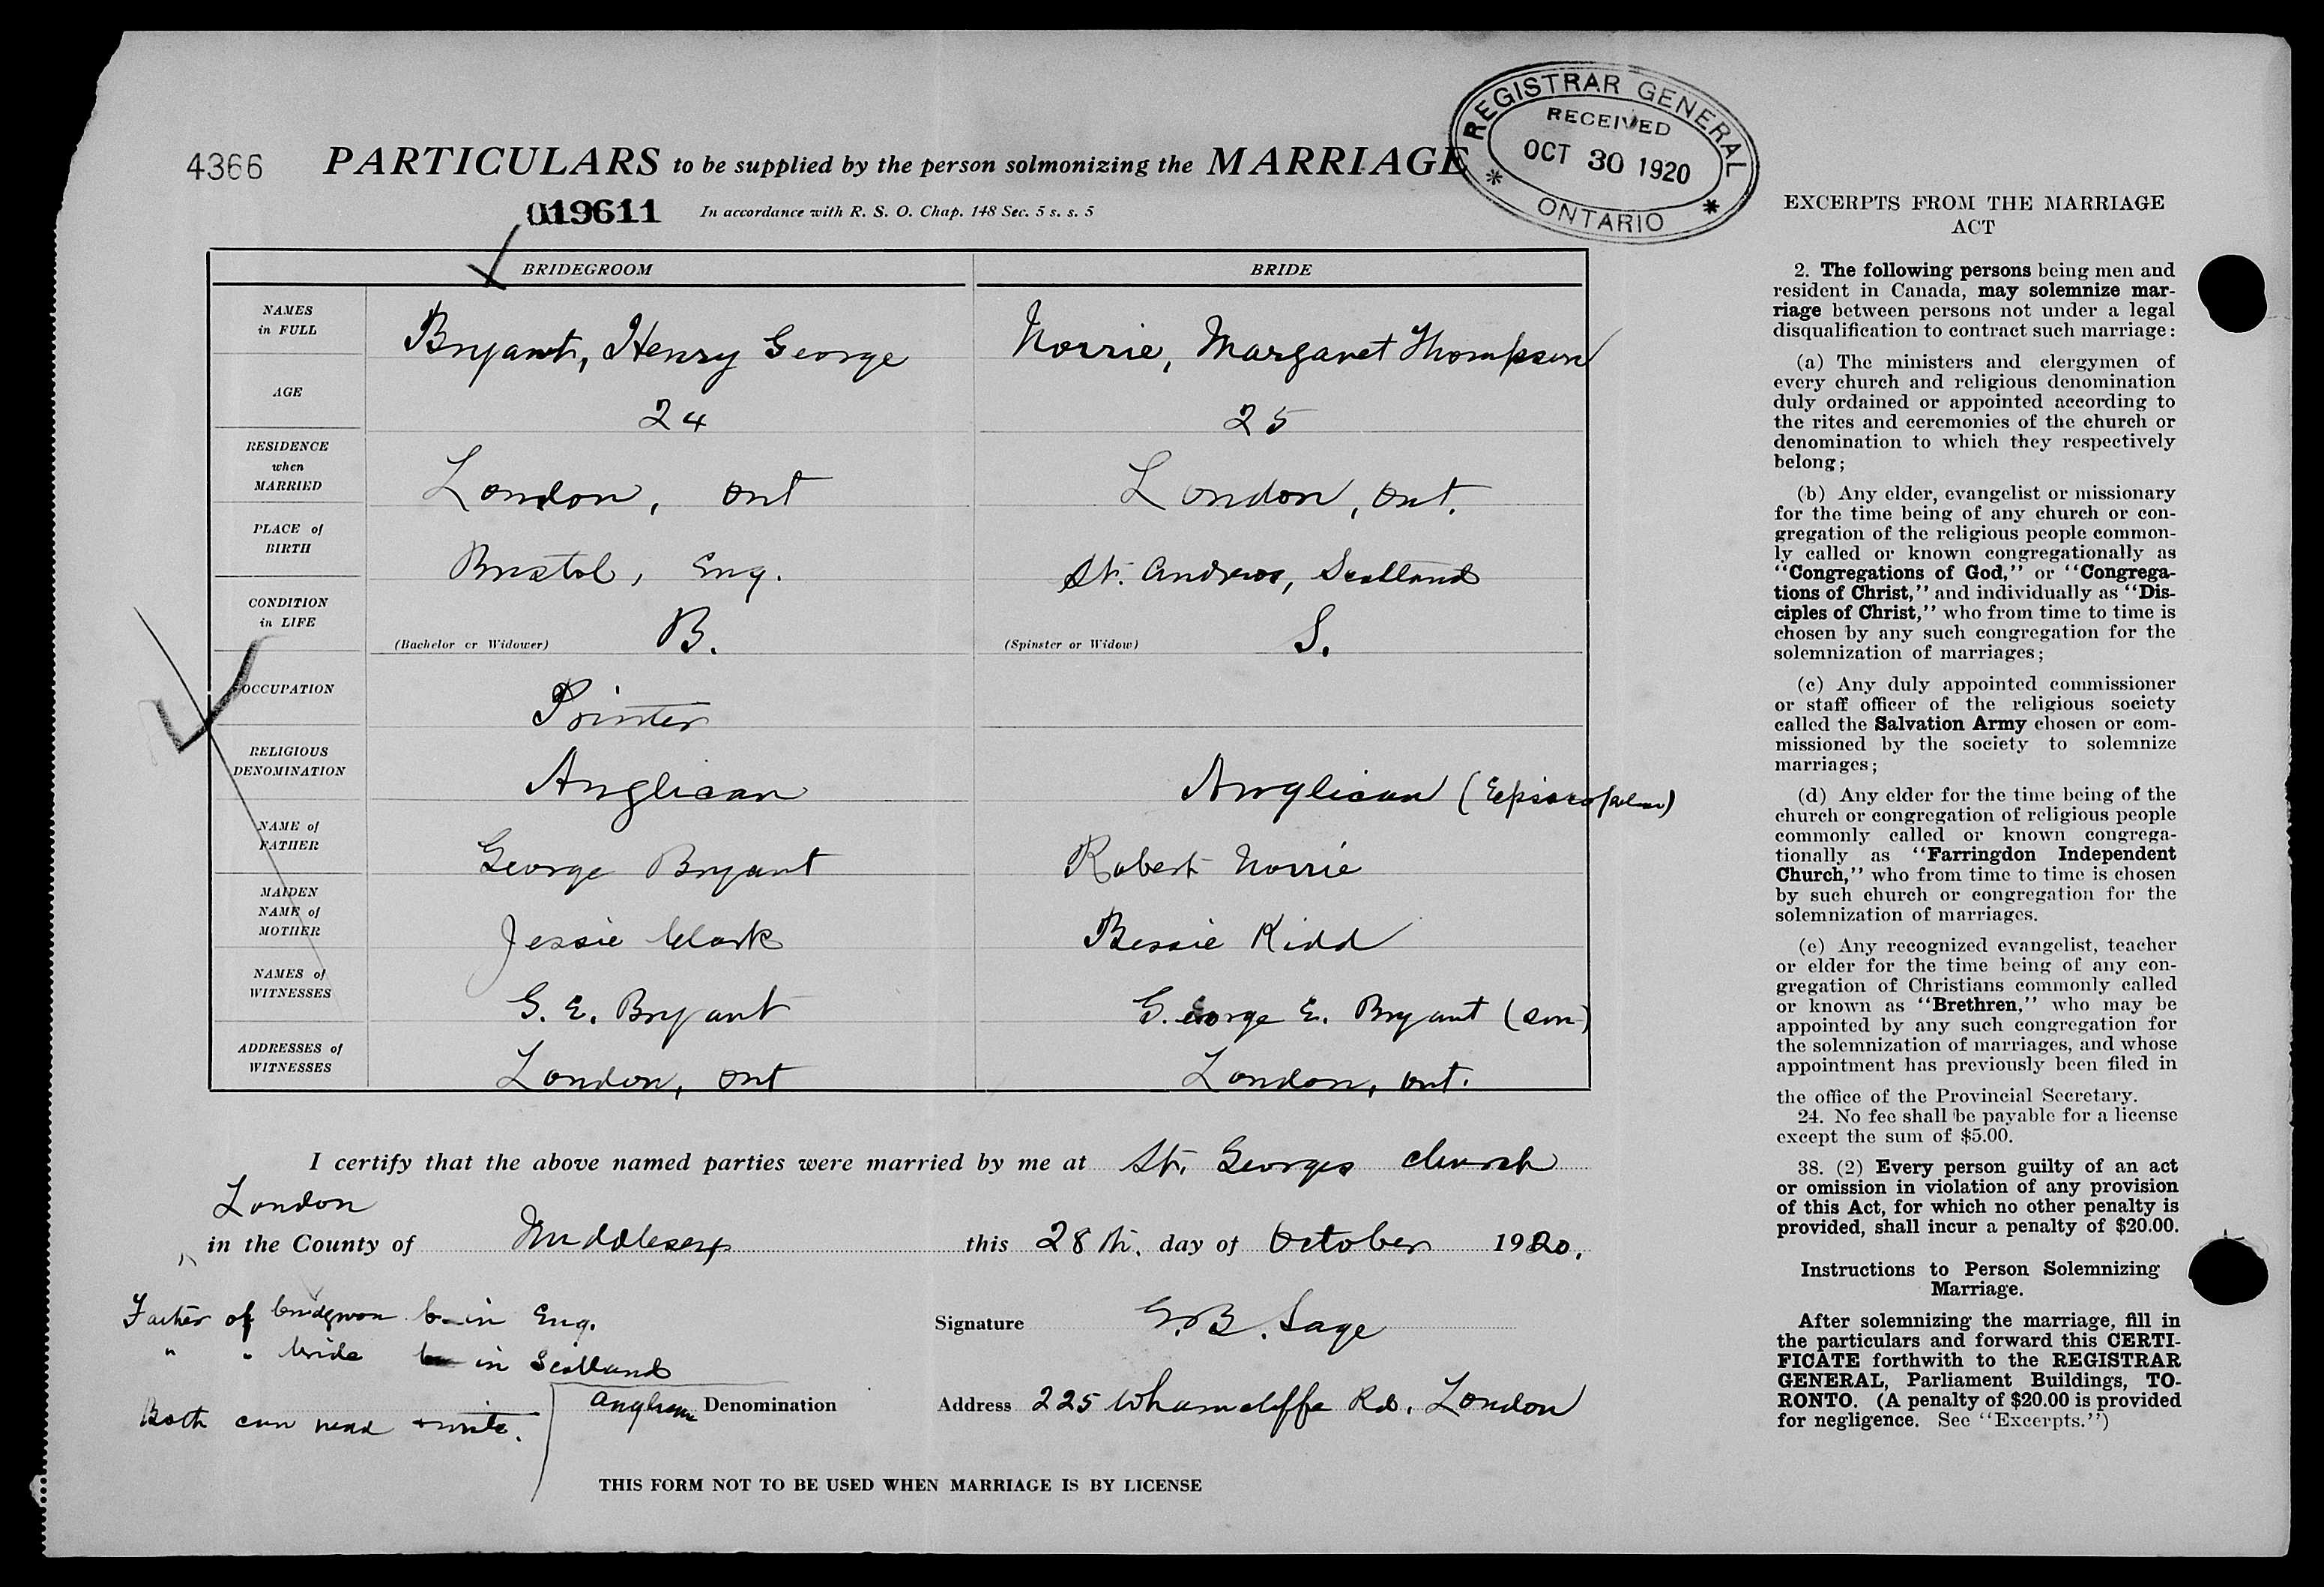 REGISTRAR GENERAL
RECEIVED
OCT 30 1920
* ONTARIO *
4366 PARTICULARS to be supplied by the person solmonizing the MARRIAGE
019611 In accordance with R. S. O. Chap. 148 Sec. 5 s. s. 5
BRIDEGROOM BRIDE
NAMES in FULL Bryant, Henry George Norrie, Margaret Thompson
AGE 24 25
RESIDENCE when MARRIED London, Ont London, Ont.
PLACE of BIRTH Bristol, Eng. St. Andrews, Scotland
CONDITION in LIFE (Bachelor or Widower) B. (Spinster or Widow) S.
OCCUPATION Printer
RELIGIOUS DENOMINATION Anglican Anglican
NAME of FATHER George Bryant Robert Norrie
MAIDEN NAME of MOTHER Jessie Clark Bessie Kidd
NAMES of WITNESSES G. E. Bryant G. George E. Bryant (son)
ADDRESSES of WITNESSES London, Ont London, Ont.
I certify that the above named parties were married by me at St. Georges church
London
in the County of Middlesex this 28th. day of October 1920.
Father of bridegroom b in Eng.
" " bride in Scotland
Both can read & write.
Signature G. B. Sage
Anglican Denomination Address 225 Wharncliffe Rd. London
THIS FORM NOT TO BE USED WHEN MARRIAGE IS BY LICENSE
EXCERPTS FROM THE MARRIAGE
ACT
2. The following persons being men and
resident in Canada, may solemnize mar-
riage between persons not under a legal
disqualification to contract such marriage:
(a) The ministers and clergymen of
every church and religious denomination
duly ordained or appointed according to
the rites and ceremonies of the church or
denomination to which they respectively
belong;
(b) Any elder, evangelist or missionary
for the time being of any church or con-
gregation of the religious people common-
ly called or known congregationally as
"Congregations of God," or "Congrega-
tions of Christ," and individually as "Dis-
ciples of Christ," who from time to time is
chosen by any such congregation for the
solemnization of marriages;
(c) Any duly appointed commissioner
or staff officer of the religious society
called the Salvation Army chosen or com-
missioned by the society to solemnize
marriages;
(d) Any elder for the time being of the
church or congregation of religious people
commonly called or known congrega-
tionally as "Farringdon Independent
Church," who from time to time is chosen
by such church or congregation for the
solemnization of marriages.
(e) Any recognized evangelist, teacher
or elder for the time being of any con-
gregation of Christians commonly called
or known as "Brethren," who may be
appointed by any such congregation for
the solemnization of marriages, and whose
appointment has previously been filed in
the office of the Provincial Secretary.
24. No fee shall be payable for a license
except the sum of $5.00.
38. (2) Every person guilty of an act
or omission in violation of any provision
of this Act, for which no other penalty is
provided, shall incur a penalty of $20.00.
Instructions to Person Solemnizing
Marriage.
After solemnizing the marriage, fill in
the particulars and forward this CERTI-
FICATE forthwith to the REGISTRAR
GENERAL, Parliament Buildings, TO-
RONTO. (A penalty of $20.00 is provided
for negligence. See "Excerpts.")